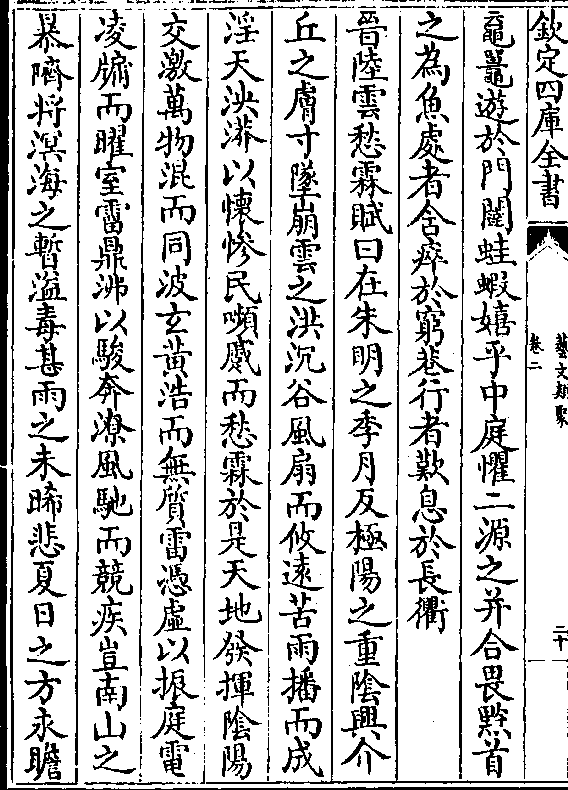 欽定四庫全書
藝文類聚
卷二
二十
黿鼉遊於門闥蛙蝦嬉乎中庭懼二源之并合畏黔首
之為魚處者含瘁於窮巷行者歎息於長衢
晉陸雲愁霖賦曰在朱明之季月反極陽之重陰興介
丘之膚寸墜崩雲之洪沉谷風扇而攸遠苦雨播而成
淫天泱漭以懐惨民嚬蹙而愁霖於是天地發揮陰陽
交激萬物混而同波玄黃浩而無質雷憑虛以振庭電
凌牖而曜室霤鼎沸以駿奔潦風馳而競疾豈南山之
暴隮将溟海之暫溢毒甚雨之未晞悲夏日之方永瞻